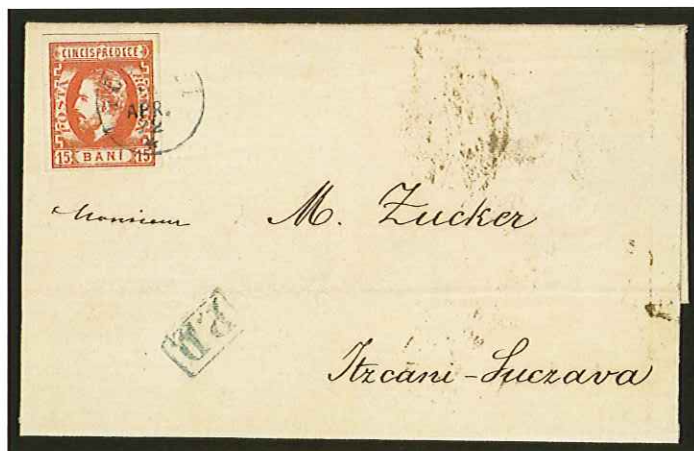 CINCISPREDECE
POSTA
15 BANI 15
APR.
22
Monsieur M. Zucker
P.D.
Itzcani-Suczava